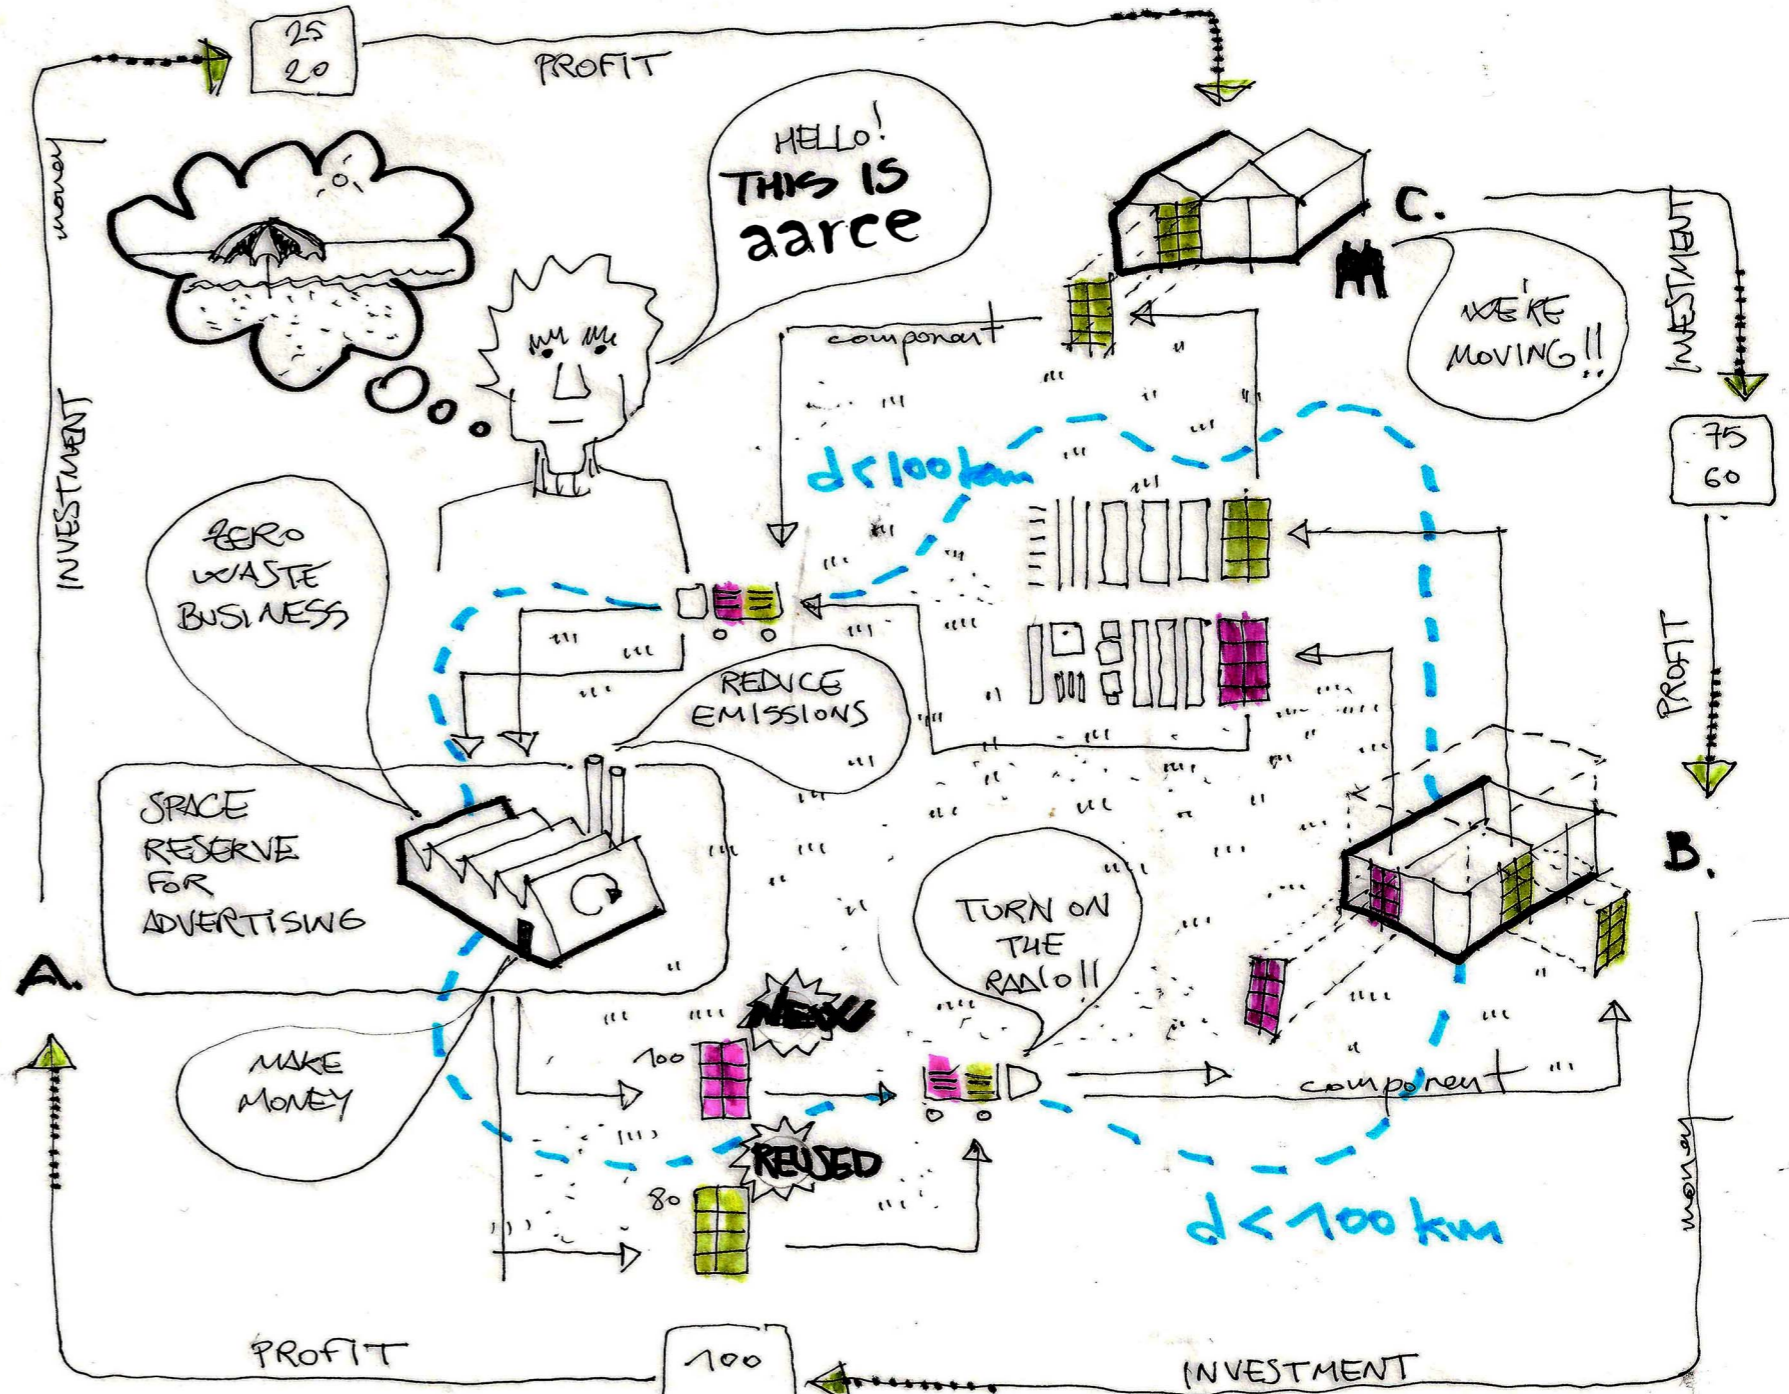 25
20
PROFIT
money
HELLO!
THIS IS
aarce
C.
INVESTMENT
WE'RE
MOVING!!
component
INVESTMENT
d<100km
75
60
ZERO
WASTE
BUSINESS
REDUCE
EMISSIONS
PROFIT
SPACE
RESERVE
FOR
ADVERTISING
B.
TURN ON
THE
RADIO!!
A.
NEW
100
MAKE
MONEY
component
REUSED
80
money
d<100km
PROFIT
100
INVESTMENT